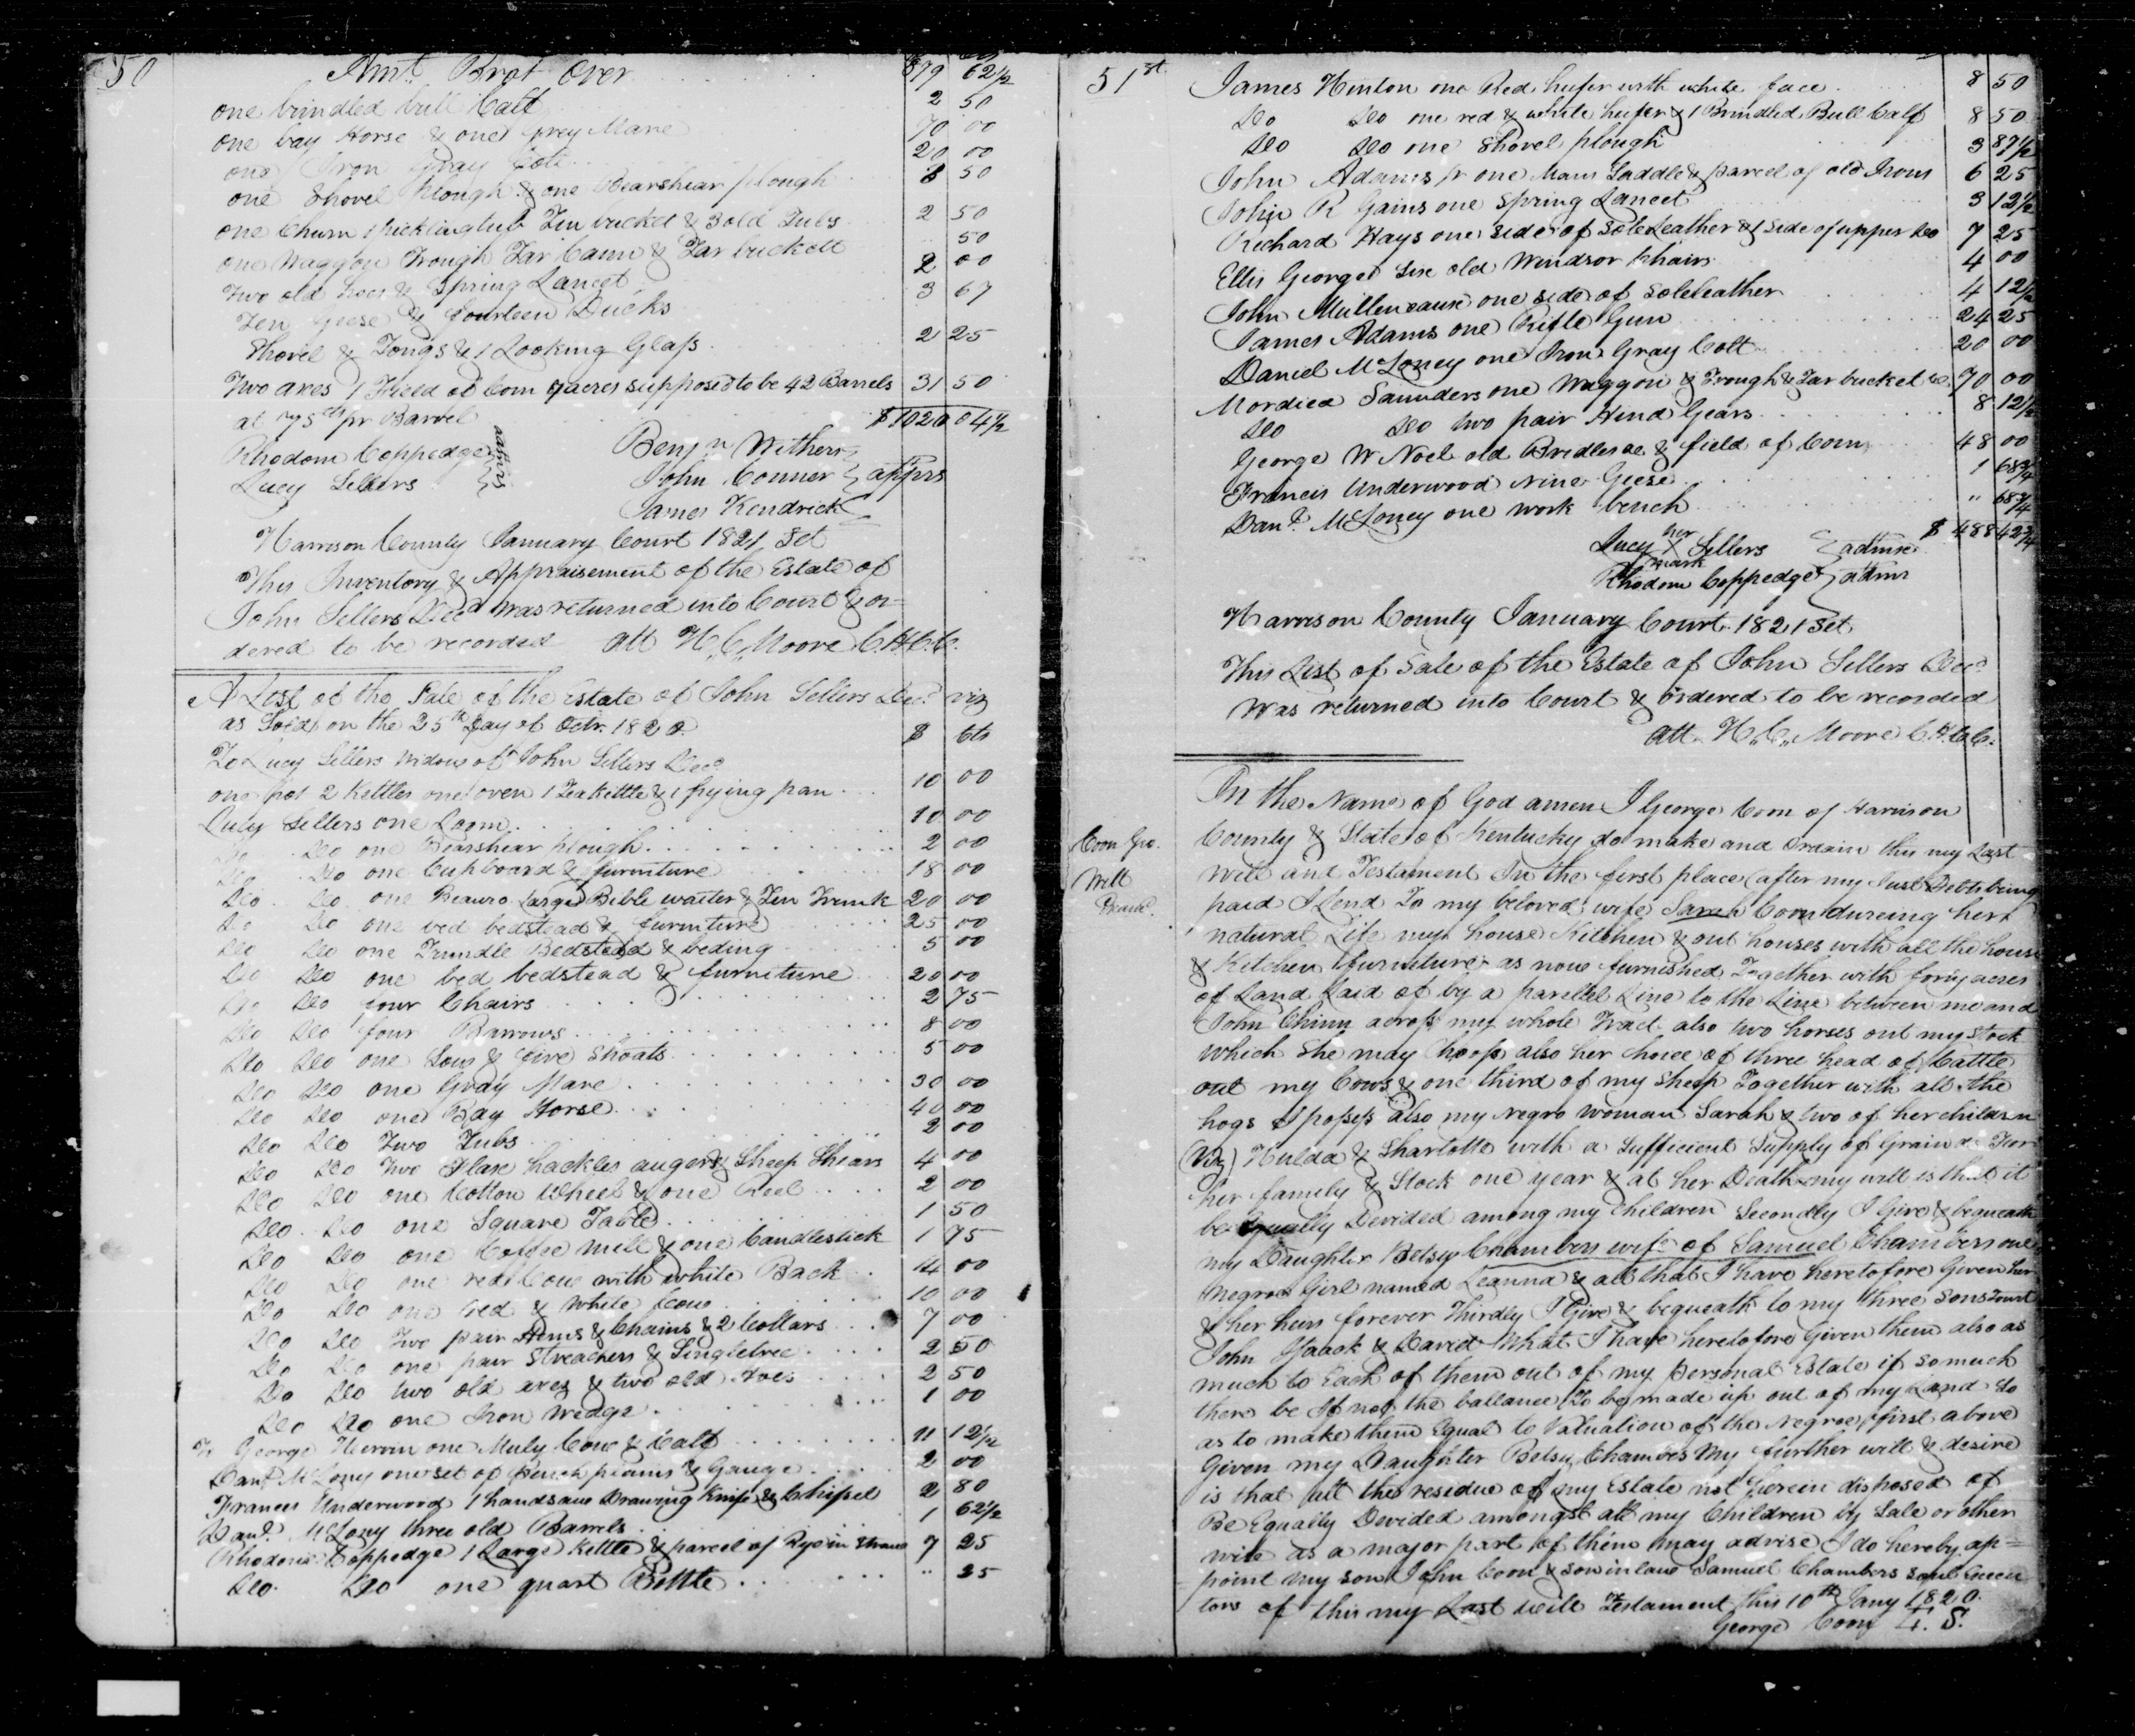 50 Amt. Brot Over 879 62½
one brindled bull Calf 2 50
one bay Horse & one grey Mare 70 00
one Iron Gray Colt 20 00
one Shovel Plough & one Bearshear plough 8 50
one Churn 1 pickling tub Tin bucket & 3 old Tubs 2 50
one Waggon Trough Tar Cann & Tar buckett 50
Two old hoes & Spring Lancet 2 00
Ten Geese & fourteen Ducks 3 67
Shovel & Tongs & 1 Looking Glass 2 25
Two axes 1 Field of Corn 7 acres supposed to be 42 Barrels 31 50
at 75 cts pr Barrel $1020 04½
Rhodom Coppedge
Lucy Sellers } admrs
Benjn Withers
John Conner } apprs
James Kendrick
Harrison County January Court 1821 Sct
This Inventory & Appraisement of the Estate of
John Sellers Decd was returned into Court & or=
dered to be recorded att H. C. Moore C.H.C.C.
A List of the Sale of the Estate of John Sellers Decd. viz
as Sold on the 25th day of Octr. 1820. $ Cts
To Lucy Sellers Widow of John Sellers Decd
one pot 2 Kettles one oven 1 Teakettle & 1 frying pan 10 00
Lucy Sellers one Loom 10 00
Do Do one Bearshear plough 2 00
Do Do one Cupboard & furniture 18 00
Do Do one Beauro Large Bible waiter & Tin Trunk 20 00
Do Do one bed bedstead & furniture 25 00
Do Do one Trundle Bedstead & beding 5 00
Do Do one bed bedstead & furniture 20 00
Do Do four Chairs 2 75
Do Do four Barrows 8 00
Do Do one Sow & five Shoats 5 00
Do Do one Gray Mare 30 00
Do Do one Bay Horse 40 00
Do Do Two Tubs 2 00
Do Do Two Flax hackles augers & Sheep Shears 4 00
Do Do one Cotton Wheel & one Reel 2 00
Do Do one Square Table 1 50
Do Do one Coffee mill & one Candlestick 1 75
Do Do one red Cow with white Back 14 00
Do Do one red & white Cow 10 00
Do Do Two pair Hems & Chains & 2 Collars 7 00
Do Do one pair Streachers & Singletree 2 50
Do Do two old axes & two old Hoes 2 50
Do Do one Iron Wedge 1 00
To George one Muly Cow & Calf 11 12½
Danl. McLoney one set of Bench plains & Gauge 2 00
Frances Underwood 1 handsaw Drawing Knife & Chissel 2 80
Danl. McLoney three old Barrels 1 62½
Rhodom Coppedge 1 Large Kettle & parcel of Rye in Straw 7 25
Do. Do one quart Bottle " 25
51st James Hinton one Red heifer with white face 8 50
Do Do one red & white heifer & 1 Brindled Bull Calf 8 50
Do Do one Shovel plough 3 87½
John Adams jr one Mans Saddle & parcel of old Irons 6 25
John R Gains one Spring Lancet 3 12½
Richard Hays one side of Soleleather & 1 side of upper Do 7 25
Ellis George Six old Windsor Chairs 4 00
John Mullencause one side of Soleleather 4 12½
James Adams one Rifle Gun 24 25
Daniel McLoney one Iron Gray Colt 20 00
Mordica Saunders one Waggon & Trough & Tar bucket &c. 70 00
Do Do two pair Hind Gears 8 12½
George W Noel old Bridles &c & field of Corn 48 00
Francis Underwood nine Geese 1 68¾
Danl. McLoney one work bench " 68¾
$ 488 42¾
Lucy her X mark Sellers } admx
Rhodom Coppedge } admr
Harrison County January Court 1821 Sct
This List of Sale of the Estate of John Sellers Decd
Was returned into Court & ordered to be recorded
att. H. C. Moore C.H.C.C.
Coon Geo.
Will
In the Name of God amen I George Coon of Harrison
County & State of Kentucky do make and ordain this my Last
Will and Testament In the first place (after my Just Debts being
paid I Lend To my beloved wife Sarah Coon dureing her
natural Life my house Kitchen & out houses with all the house
& Kitchen furniture as now furnished Together with forty acres
of Land Laid of by a parellel Line to the Line between me and
John Chinn across my whole Tract also two horses out my stock
which she may Choose also her choice of three head of Cattle
out my Cows & one third of my Sheep Together with all the
hogs I possess also my negro woman Sarah & two of her children
(Viz) Hulda & Sharlotte with a Sufficient Supply of Grain &c For
her family & Stock one year & at her Death my will is that it
be Equally Devided among my children Secondly I Give & bequeath
my Daughter Betsy Chambers wife of Samuel Chambers one
negroe Girl named Leanna & all that I have heretofore Given her
& her heirs forever Thirdly I Give & bequeath to my three Sons Towit
John Isaack & David What I have heretofore Given them also as
much to Each of them out of my Personal Estate if so much
there be If not the ballance To be made up out of my Land so
as to make them Equal to Valuation of the negroe first above
Given my Daughter Betsy Chambers My further will & desire
is that all the residue of my Estate not herein disposed of
Be Equally Devided amongst all my Children by Sale or other
wise as a major part of them may advise I do hereby ap=
point my son John Coon & son in law Samuel Chambers Execu
tors of this my Last will Testament this 10th Jany 1820.
George Coon L. S.